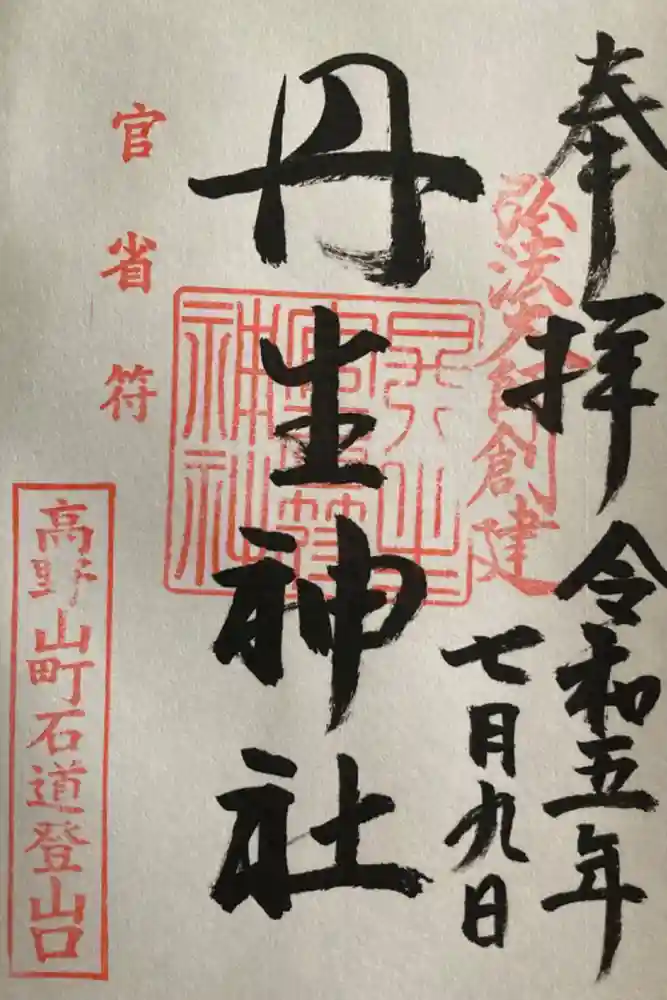 奉拝
弘法大師創建
令和五年
七月九日
丹生神社
官省符
高野山町石道登山口